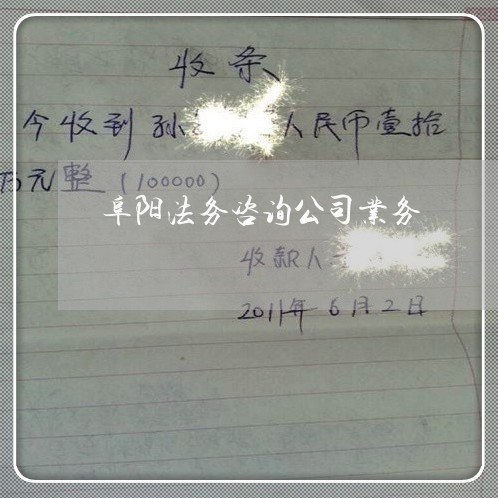 收条
今收到孙 人民币壹拾
万元整（100000）
阜阳法务咨询公司業务
收款人
2011年6月2日